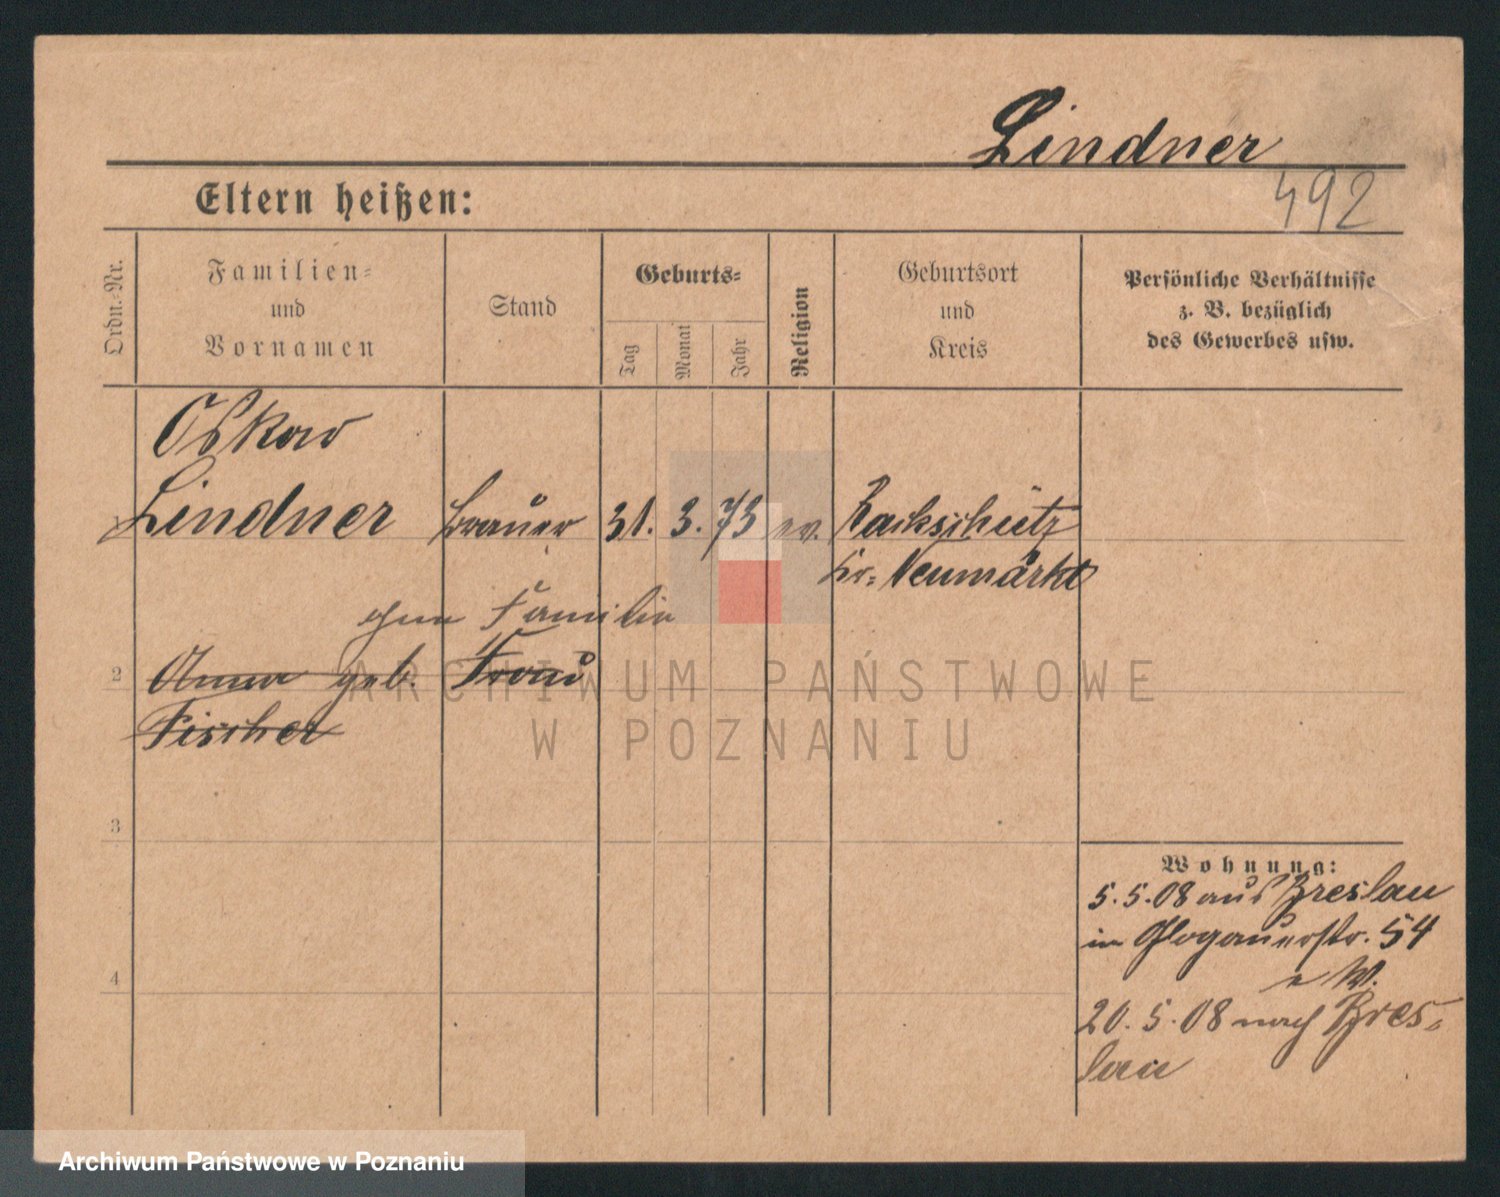 Lindner
492
Eltern heißen:
Ordn.-Nr.
Familien-
und
Vornamen
Stand
Geburts-
Tag
Monat
Jahr
Religion
Geburtsort
und
Kreis
Persönliche Verhältnisse
z. B. bezüglich
des Gewerbes usw.
Oskar
Lindner Brauer 31. 3. 73 ev. Rackschütz
Kr. Neumarkt
ohne Familie
2 Anna geb. Frau
Fischer
3
4
Wohnung:
5.5.08 aus Breslau
in Glogauerstr. 54
W.
20.5.08 nach Bres-
lau
ARCHIWUM PAŃSTWOWE
W POZNANIU
Archiwum Państwowe w Poznaniu